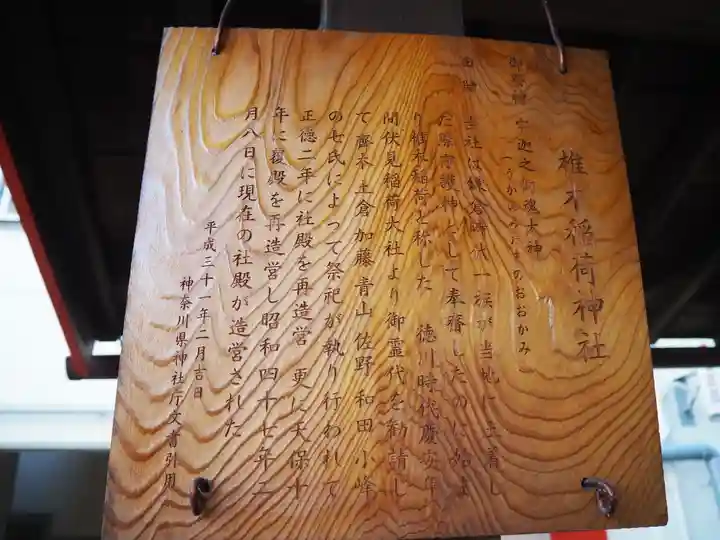 椎木稲荷神社
御祭神 宇迦之御魂大神
(うかのみたまのおおかみ)
由緒 当社は鎌倉時代一族が当地に土着し
た際守護神として奉齋したのに始ま
り 稲荷と称した 徳川時代慶安年
間伏見稲荷大社より御霊代を勧請し
て齊木 土倉 加藤 青山 佐野 和田 小峰
の七氏によって祭祀が執り行われて
正徳二年に社殿を再造営 更に天保十
年に覆殿を再造営し昭和四十七年二
月八日に現在の社殿が造営された
平成三十一年二月吉日
神奈川県神社庁文書引用